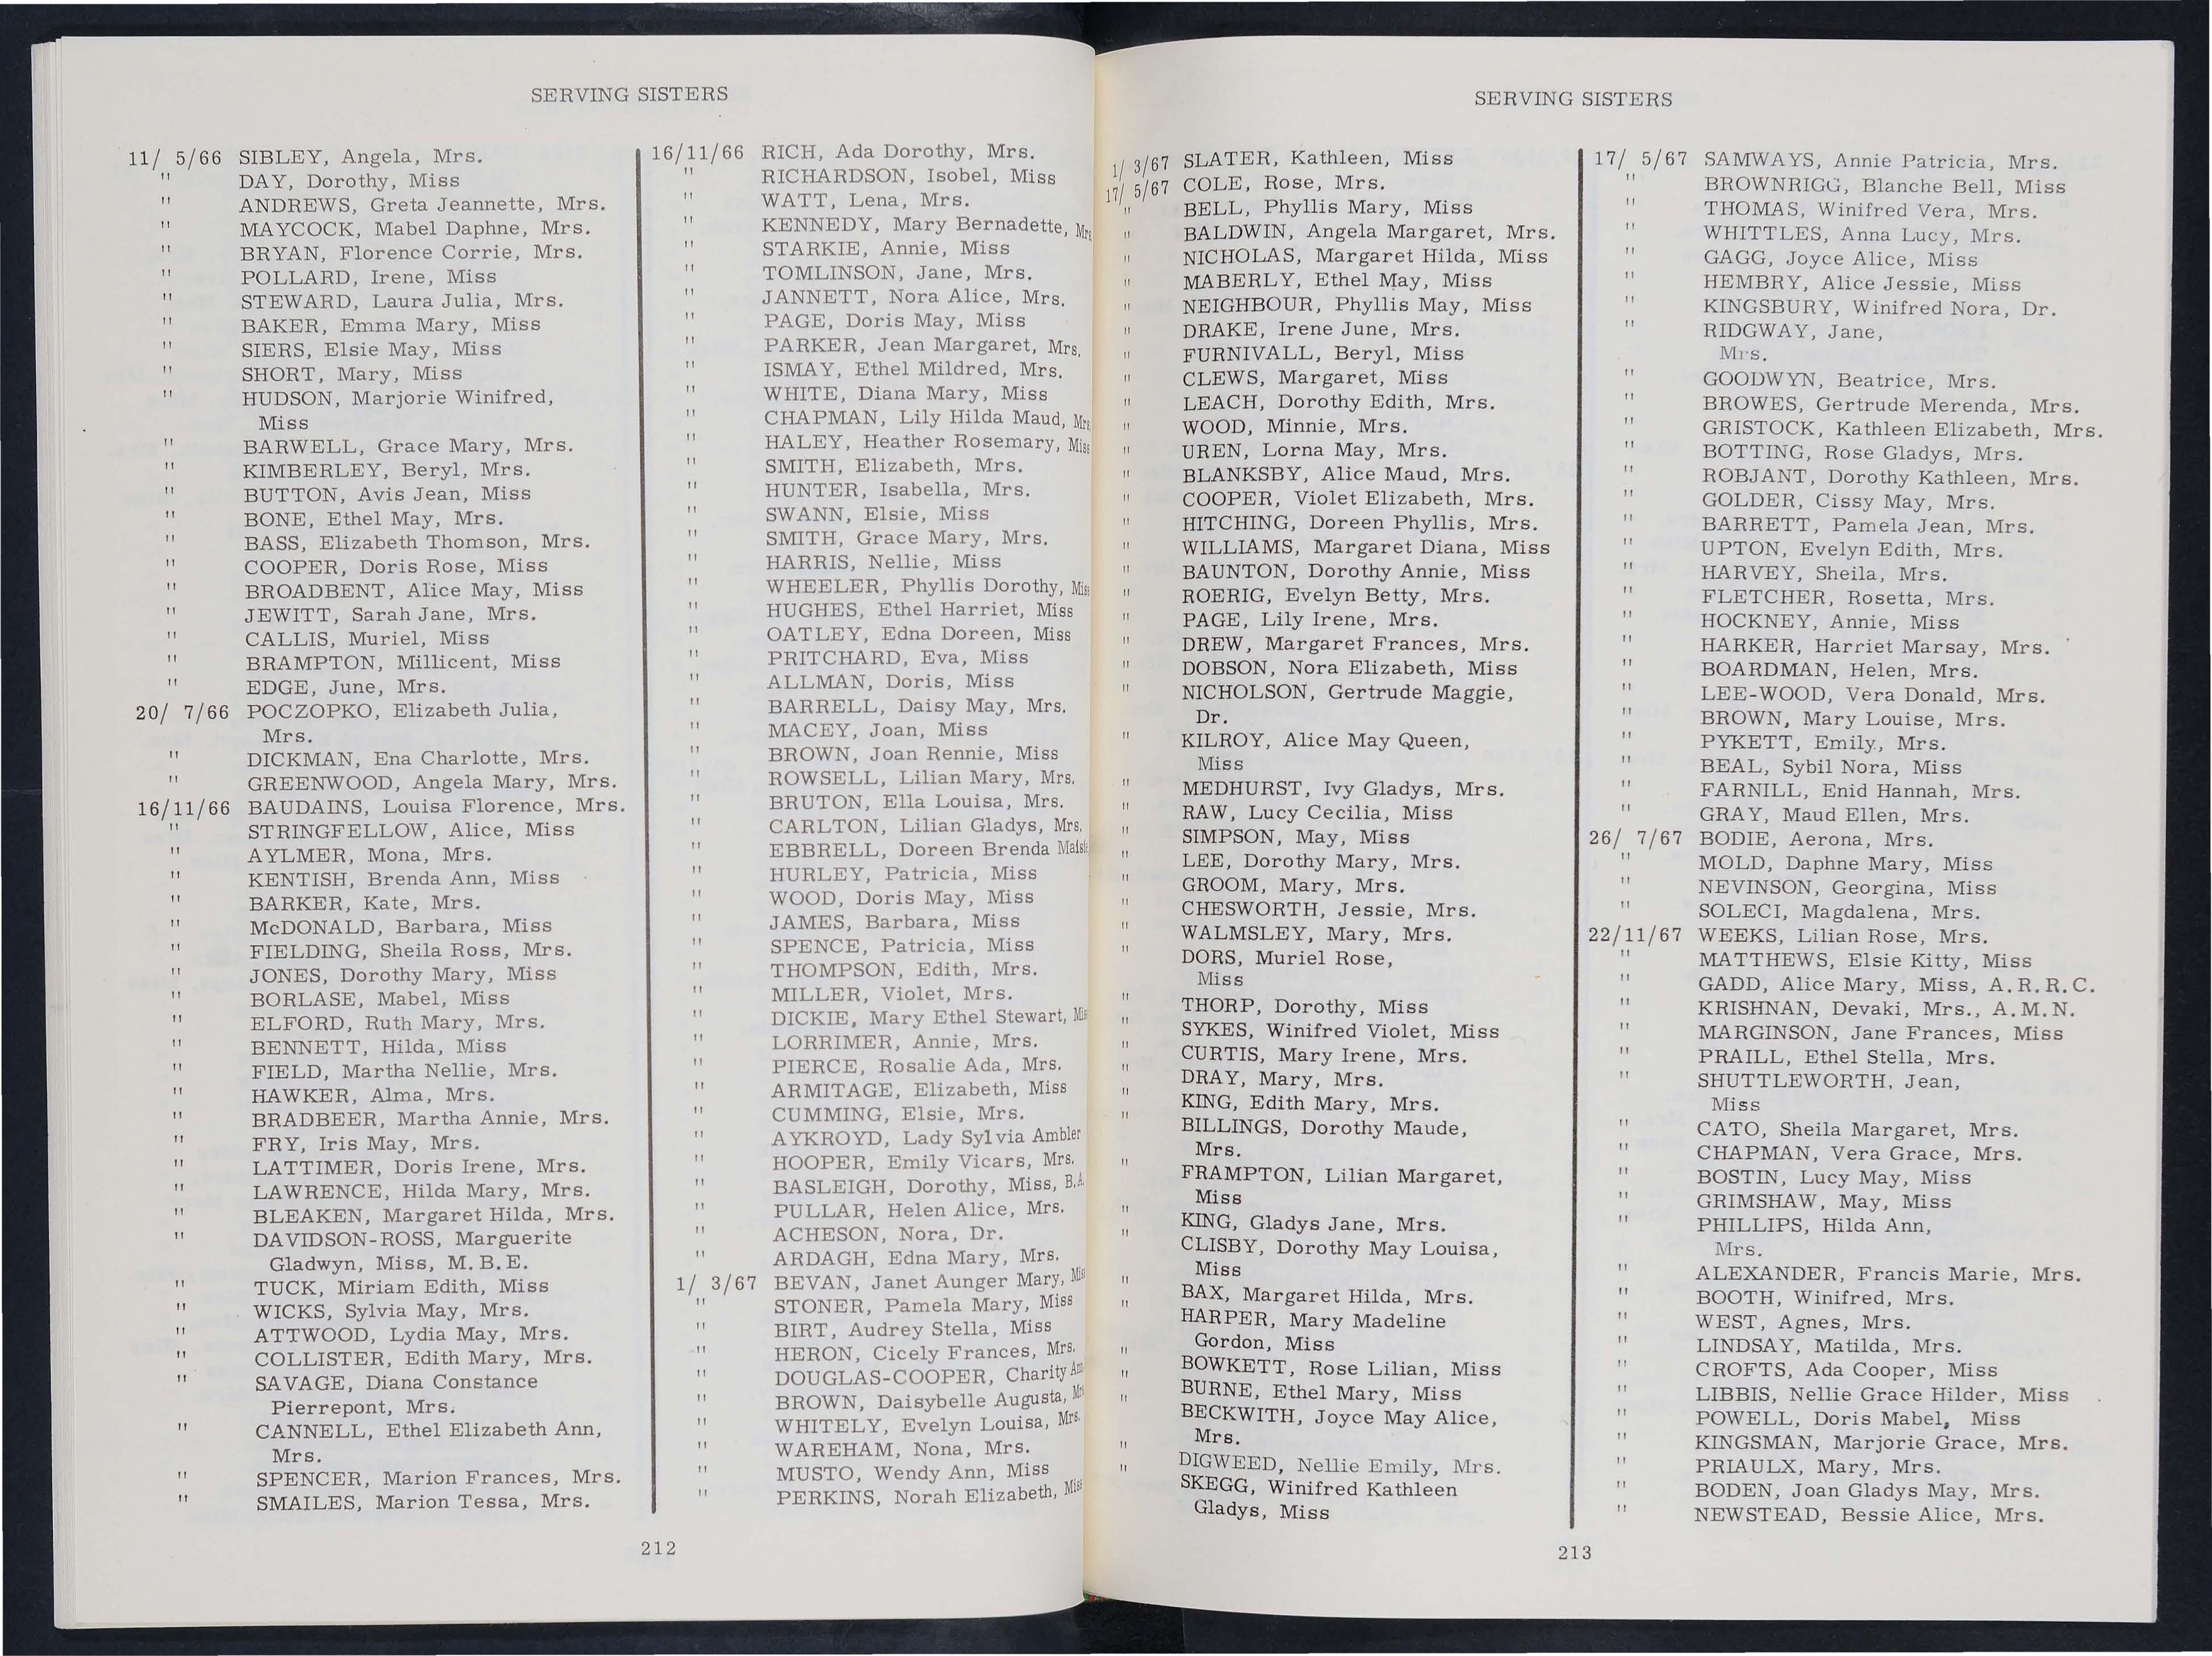 SERVING SISTERS
11/ 5/66 SIBLEY, Angela, Mrs.
" DAY, Dorothy, Miss
" ANDREWS, Greta Jeannette, Mrs.
" MAYCOCK, Mabel Daphne, Mrs.
" BRYAN, Florence Corrie, Mrs.
" POLLARD, Irene, Miss
" STEWARD, Laura Julia, Mrs.
" BAKER, Emma Mary, Miss
" SIERS, Elsie May, Miss
" SHORT, Mary, Miss
" HUDSON, Marjorie Winifred,
Miss
" BARWELL, Grace Mary, Mrs.
" KIMBERLEY, Beryl, Mrs.
" BUTTON, Avis Jean, Miss
" BONE, Ethel May, Mrs.
" BASS, Elizabeth Thomson, Mrs.
" COOPER, Doris Rose, Miss
" BROADBENT, Alice May, Miss
" JEWITT, Sarah Jane, Mrs.
" CALLIS, Muriel, Miss
" BRAMPTON, Millicent, Miss
" EDGE, June, Mrs.
20/ 7/66 POCZOPKO, Elizabeth Julia,
Mrs.
" DICKMAN, Ena Charlotte, Mrs.
" GREENWOOD, Angela Mary, Mrs.
16/11/66 BAUDAINS, Louisa Florence, Mrs.
" STRINGFELLOW, Alice, Miss
" AYLMER, Mona, Mrs.
" KENTISH, Brenda Ann, Miss
" BARKER, Kate, Mrs.
" McDONALD, Barbara, Miss
" FIELDING, Sheila Ross, Mrs.
" JONES, Dorothy Mary, Miss
" BORLASE, Mabel, Miss
" ELFORD, Ruth Mary, Mrs.
" BENNETT, Hilda, Miss
" FIELD, Martha Nellie, Mrs.
" HAWKER, Alma, Mrs.
" BRADBEER, Martha Annie, Mrs.
" FRY, Iris May, Mrs.
" LATTIMER, Doris Irene, Mrs.
" LAWRENCE, Hilda Mary, Mrs.
" BLEAKEN, Margaret Hilda, Mrs.
" DAVIDSON-ROSS, Marguerite
Gladwyn, Miss, M.B.E.
" TUCK, Miriam Edith, Miss
" WICKS, Sylvia May, Mrs.
" ATTWOOD, Lydia May, Mrs.
" COLLISTER, Edith Mary, Mrs.
" SAVAGE, Diana Constance
Pierrepont, Mrs.
" CANNELL, Ethel Elizabeth Ann,
Mrs.
" SPENCER, Marion Frances, Mrs.
" SMAILES, Marion Tessa, Mrs.
16/11/66 RICH, Ada Dorothy, Mrs.
" RICHARDSON, Isobel, Miss
" WATT, Lena, Mrs.
" KENNEDY, Mary Bernadette, Mrs
" STARKIE, Annie, Miss
" TOMLINSON, Jane, Mrs.
" JANNETT, Nora Alice, Mrs.
" PAGE, Doris May, Miss
" PARKER, Jean Margaret, Mrs.
" ISMAY, Ethel Mildred, Mrs.
" WHITE, Diana Mary, Miss
" CHAPMAN, Lily Hilda Maud, Mrs
" HALEY, Heather Rosemary, Miss
" SMITH, Elizabeth, Mrs.
" HUNTER, Isabella, Mrs.
" SWANN, Elsie, Miss
" SMITH, Grace Mary, Mrs.
" HARRIS, Nellie, Miss
" WHEELER, Phyllis Dorothy, Miss
" HUGHES, Ethel Harriet, Miss
" OATLEY, Edna Doreen, Miss
" PRITCHARD, Eva, Miss
" ALLMAN, Doris, Miss
" BARRELL, Daisy May, Mrs.
" MACEY, Joan, Miss
" BROWN, Joan Rennie, Miss
" ROWSELL, Lilian Mary, Mrs.
" BRUTON, Ella Louisa, Mrs.
" CARLTON, Lilian Gladys, Mrs.
" EBBRELL, Doreen Brenda
" HURLEY, Patricia, Miss
" WOOD, Doris May, Miss
" JAMES, Barbara, Miss
" SPENCE, Patricia, Miss
" THOMPSON, Edith, Mrs.
" MILLER, Violet, Mrs.
" DICKIE, Mary Ethel Stewart,
" LORRIMER, Annie, Mrs.
" PIERCE, Rosalie Ada, Mrs.
" ARMITAGE, Elizabeth, Miss
" CUMMING, Elsie, Mrs.
" AYKROYD, Lady Sylvia Ambler
" HOOPER, Emily Vicars, Mrs.
" BASLEIGH, Dorothy, Miss, B.A.
" PULLAR, Helen Alice, Mrs.
" ACHESON, Nora, Dr.
" ARDAGH, Edna Mary, Mrs.
1/ 3/67 BEVAN, Janet Aunger Mary,
" STONER, Pamela Mary, Miss
" BIRT, Audrey Stella, Miss
" HERON, Cicely Frances, Mrs.
" DOUGLAS-COOPER, Charity
" BROWN, Daisybelle Augusta,
" WHITELY, Evelyn Louisa, Mrs.
" WAREHAM, Nona, Mrs.
" MUSTO, Wendy Ann, Miss
" PERKINS, Norah Elizabeth, Miss
212
SERVING SISTERS
1/ 3/67 SLATER, Kathleen, Miss
17/ 5/67 COLE, Rose, Mrs.
" BELL, Phyllis Mary, Miss
" BALDWIN, Angela Margaret, Mrs.
" NICHOLAS, Margaret Hilda, Miss
" MABERLY, Ethel May, Miss
" NEIGHBOUR, Phyllis May, Miss
" DRAKE, Irene June, Mrs.
" FURNIVALL, Beryl, Miss
" CLEWS, Margaret, Miss
" LEACH, Dorothy Edith, Mrs.
" WOOD, Minnie, Mrs.
" UREN, Lorna May, Mrs.
" BLANKSBY, Alice Maud, Mrs.
" COOPER, Violet Elizabeth, Mrs.
" HITCHING, Doreen Phyllis, Mrs.
" WILLIAMS, Margaret Diana, Miss
" BAUNTON, Dorothy Annie, Miss
" ROERIG, Evelyn Betty, Mrs.
" PAGE, Lily Irene, Mrs.
" DREW, Margaret Frances, Mrs.
" DOBSON, Nora Elizabeth, Miss
" NICHOLSON, Gertrude Maggie,
Dr.
" KILROY, Alice May Queen,
Miss
" MEDHURST, Ivy Gladys, Mrs.
" RAW, Lucy Cecilia, Miss
" SIMPSON, May, Miss
" LEE, Dorothy Mary, Mrs.
" GROOM, Mary, Mrs.
" CHESWORTH, Jessie, Mrs.
" WALMSLEY, Mary, Mrs.
" DORS, Muriel Rose,
Miss
" THORP, Dorothy, Miss
" SYKES, Winifred Violet, Miss
" CURTIS, Mary Irene, Mrs.
" DRAY, Mary, Mrs.
" KING, Edith Mary, Mrs.
" BILLINGS, Dorothy Maude,
Mrs.
" FRAMPTON, Lilian Margaret,
Miss
" KING, Gladys Jane, Mrs.
" CLISBY, Dorothy May Louisa,
Miss
" BAX, Margaret Hilda, Mrs.
" HARPER, Mary Madeline
Gordon, Miss
" BOWKETT, Rose Lilian, Miss
" BURNE, Ethel Mary, Miss
" BECKWITH, Joyce May Alice,
Mrs.
" DIGWEED, Nellie Emily, Mrs.
" SKEGG, Winifred Kathleen
Gladys, Miss
17/ 5/67 SAMWAYS, Annie Patricia, Mrs.
" BROWNRIGG, Blanche Bell, Miss
" THOMAS, Winifred Vera, Mrs.
" WHITTLES, Anna Lucy, Mrs.
" GAGG, Joyce Alice, Miss
" HEMBRY, Alice Jessie, Miss
" KINGSBURY, Winifred Nora, Dr.
" RIDGWAY, Jane,
Mrs.
" GOODWYN, Beatrice, Mrs.
" BROWES, Gertrude Merenda, Mrs.
" GRISTOCK, Kathleen Elizabeth, Mrs.
" BOTTING, Rose Gladys, Mrs.
" ROBJANT, Dorothy Kathleen, Mrs.
" GOLDER, Cissy May, Mrs.
" BARRETT, Pamela Jean, Mrs.
" UPTON, Evelyn Edith, Mrs.
" HARVEY, Sheila, Mrs.
" FLETCHER, Rosetta, Mrs.
" HOCKNEY, Annie, Miss
" HARKER, Harriet Marsay, Mrs.
" BOARDMAN, Helen, Mrs.
" LEE-WOOD, Vera Donald, Mrs.
" BROWN, Mary Louise, Mrs.
" PYKETT, Emily, Mrs.
" BEAL, Sybil Nora, Miss
" FARNILL, Enid Hannah, Mrs.
" GRAY, Maud Ellen, Mrs.
26/ 7/67 BODIE, Aerona, Mrs.
" MOLD, Daphne Mary, Miss
" NEVINSON, Georgina, Miss
" SOLECI, Magdalena, Mrs.
22/11/67 WEEKS, Lilian Rose, Mrs.
" MATTHEWS, Elsie Kitty, Miss
" GADD, Alice Mary, Miss, A.R.R.C.
" KRISHNAN, Devaki, Mrs., A.M.N.
" MARGINSON, Jane Frances, Miss
" PRAILL, Ethel Stella, Mrs.
" SHUTTLEWORTH, Jean,
Miss
" CATO, Sheila Margaret, Mrs.
" CHAPMAN, Vera Grace, Mrs.
" BOSTIN, Lucy May, Miss
" GRIMSHAW, May, Miss
" PHILLIPS, Hilda Ann,
Mrs.
" ALEXANDER, Francis Marie, Mrs.
" BOOTH, Winifred, Mrs.
" WEST, Agnes, Mrs.
" LINDSAY, Matilda, Mrs.
" CROFTS, Ada Cooper, Miss
" LIBBIS, Nellie Grace Hilder, Miss
" POWELL, Doris Mabel, Miss
" KINGSMAN, Marjorie Grace, Mrs.
" PRIAULX, Mary, Mrs.
" BODEN, Joan Gladys May, Mrs.
" NEWSTEAD, Bessie Alice, Mrs.
213